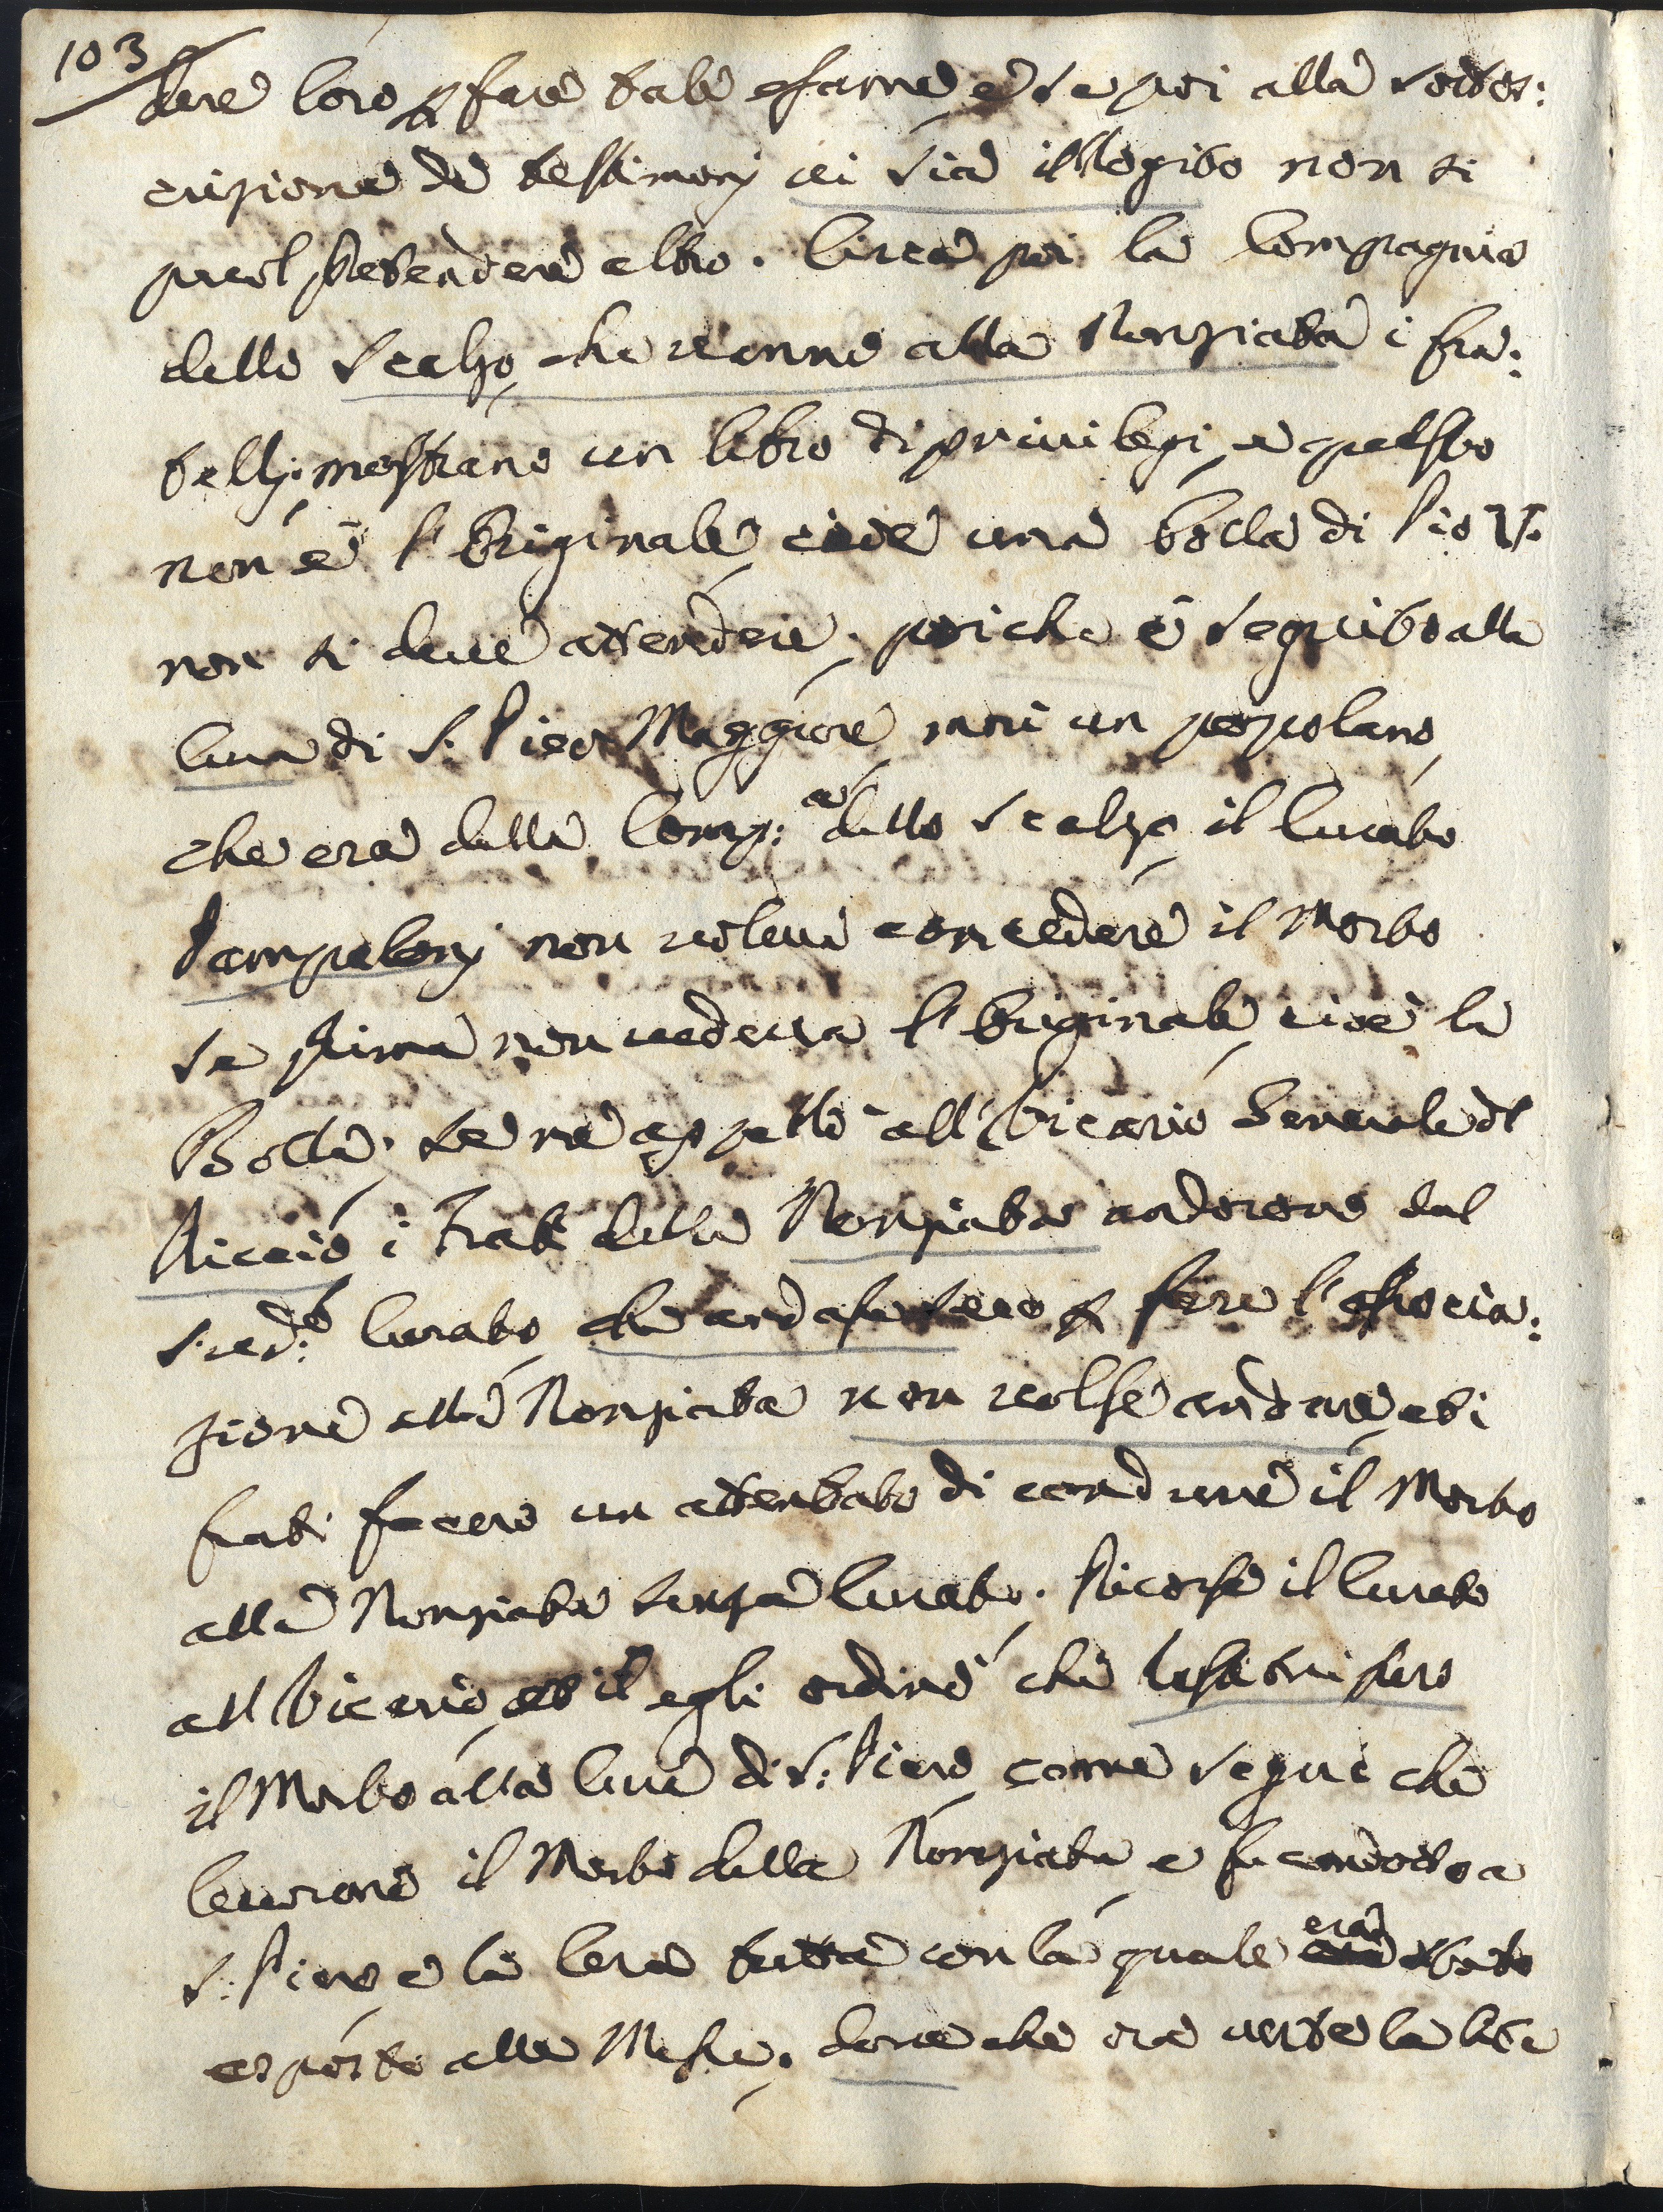 103
dere loro p fare tale esame e se poi alla sottos:
crizione de testimonj vi sia illegito non si
puol pretendere altro. Circa poi la Compagnia
dello Scalzo che vanno alla Nonziata i fra:
telli mostrano un libro di privilegi, e questo
non è l'Originale, cioè una bolla di Pio V.
non si deve attendere, poiche è seguito alla
Cura di S: Piero Maggiore morì un popolano,
che era della Comp:a dello Scalzo il Curato
Sampalonj non voleva concedere il Morto
se prima non vedeva l'Originale, cioè la
Bolla, se ne appellò all Vicario Generale dl
Riccio i Frati della Nonziata andorono dal
sud:o Curato che andasse seco p fare l'associa:
zione alla Nonziata non volse andare, e i
frati fecero un attentato di condurre il Morto
alla Nonziata senza Curato. Ricorse il Curato
all Vicario, et egli ordinò che restituissero
il Morto alla Cura di S: Piero come seguì che
levorono il Morto dalla Nonziata e fu condotto a
S: Piero e la Cera tutta con la quale era stato
esposto alla Messa. dove che ora verte la lite